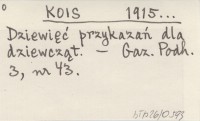 KOIS 1915...
Dziewięć przykazań dla
dziewcząt. — Gaz. Podh.
3, nr 43.